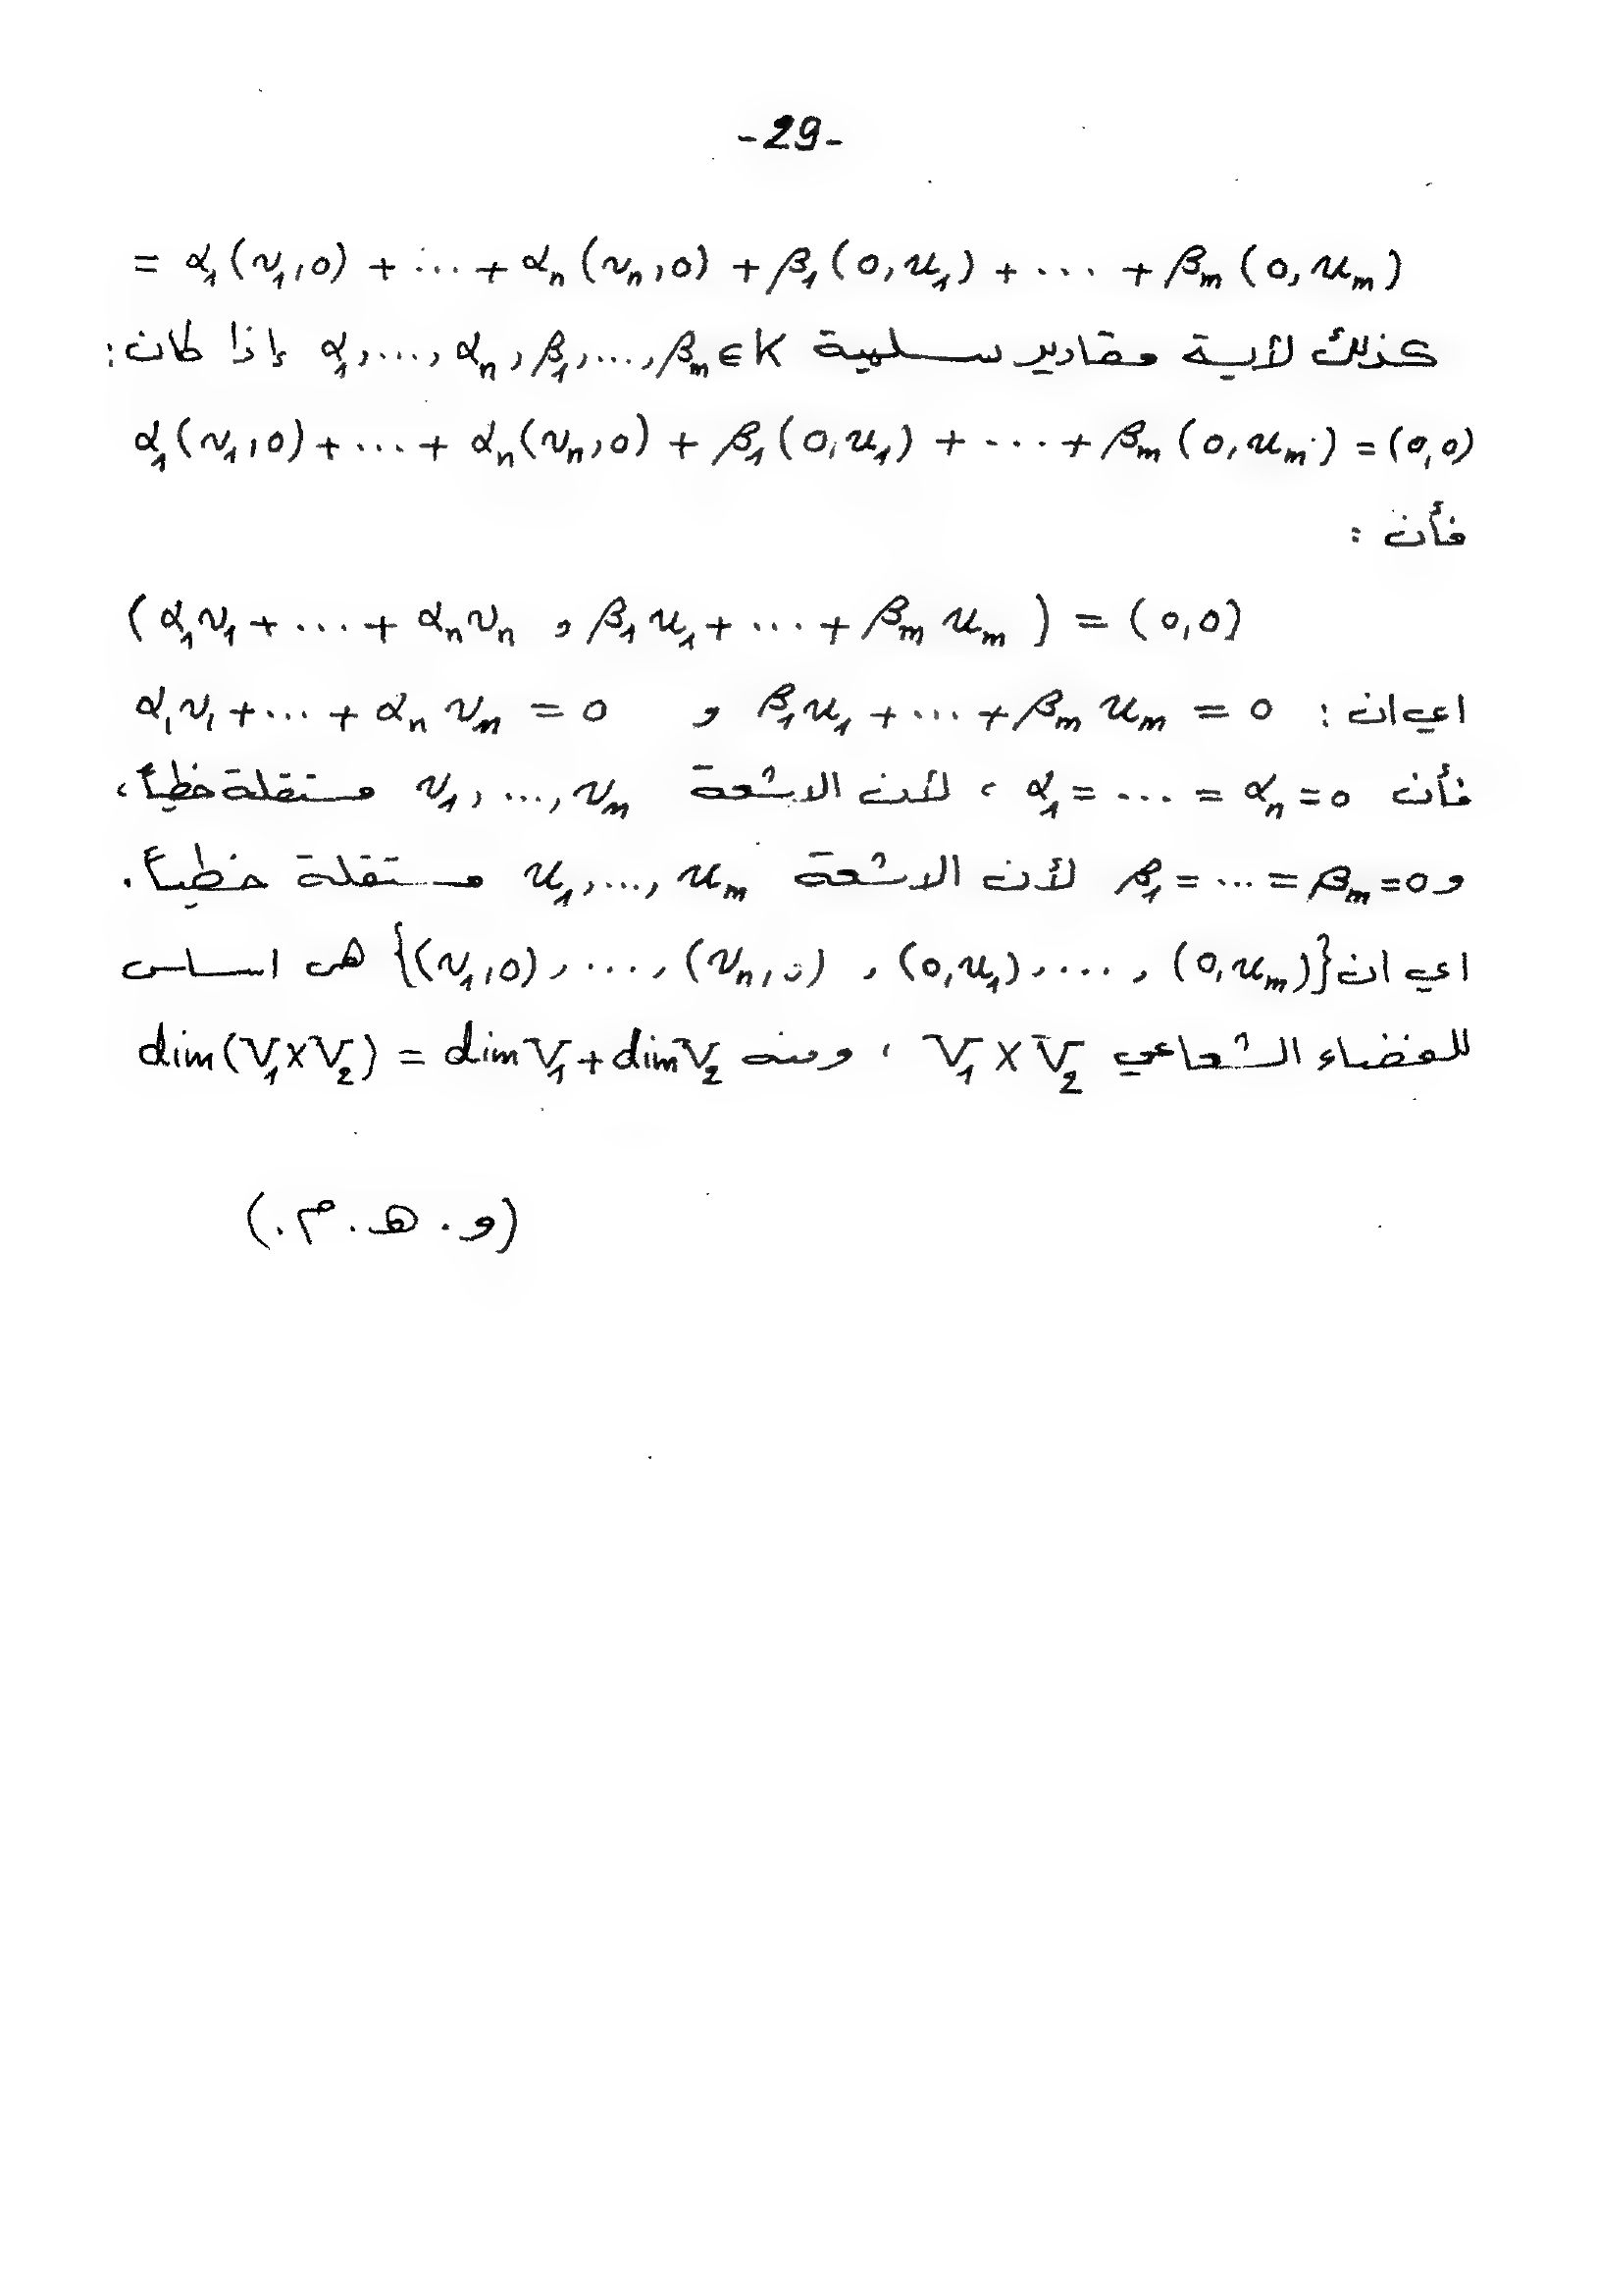 -29-
= α₁(v₁,0) + ... + αₙ(vₙ,0) + β₁(0,u₁) + ... + βₘ(0,uₘ)
كذلك لأية مقادير سلمية α₁,...,αₙ,β₁,...,βₘ∈K إذا كان:
α₁(v₁,0) + ... + αₙ(vₙ,0) + β₁(0,u₁) + ... + βₘ(0,uₘ) = (0,0)
فأن :
(α₁v₁ + ... + αₙvₙ , β₁u₁ + ... + βₘuₘ) = (0,0)
اي ان : α₁v₁ + ... + αₙvₙ = 0 و β₁u₁ + ... + βₘuₘ = 0
فأن α₁ = ... = αₙ = 0 ، لأن الاشعة v₁,...,vₘ مستقلة خطياً ،
و β₁ = ... = βₘ = 0 لأن الاشعة u₁,...,uₘ مستقلة خطياً .
اي ان {(v₁,0),...,(vₙ,0),(0,u₁),...,(0,uₘ)} هي اساس
للفضاء الشعاعي V₁×V₂ ، ومنه dim(V₁×V₂) = dimV₁ + dimV₂
(و . هـ . م .)